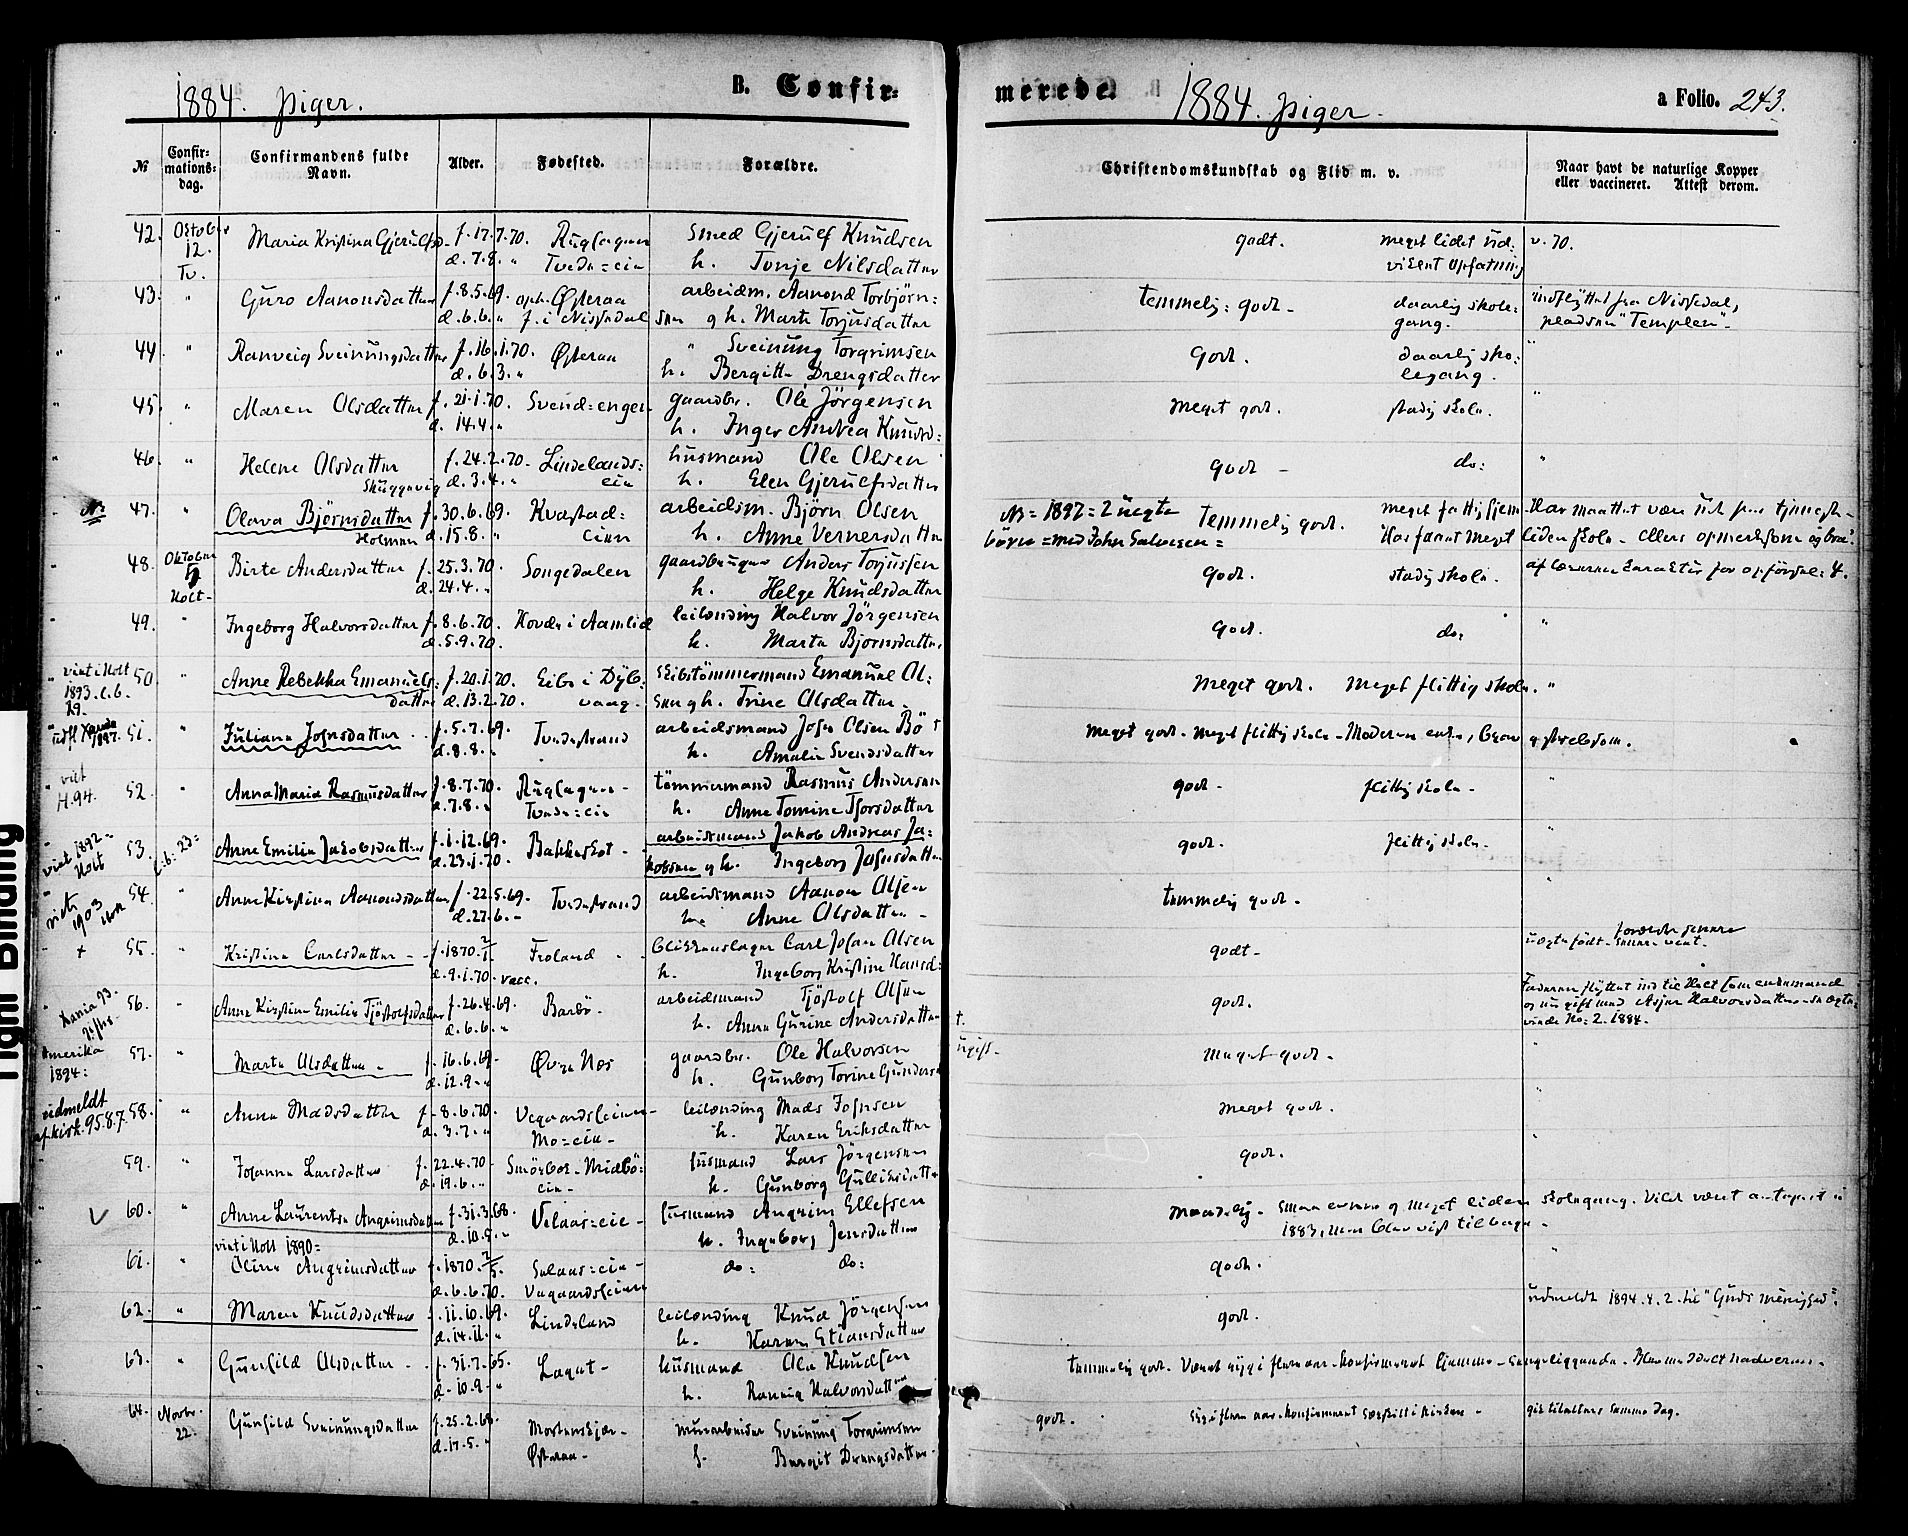 1884. piger.
B. Confir-
No
Confir-
mations-
dag.
Confirmandens fulde
Navn.
Alder.
Fødested.
Forældre.
42. Oktober Maria Kristina Gjerulfsd- f. 17.7.70. smed Gjerulf Knudsen
12. Tv. d. 7.8. " Tvede=eie h. Tonje Nilsdatter
43. " Guro Aanonsdatter f. 8.5.69. oph. Østeraa arbeidm. Aanond Torbjörn=
d. 6.6. " f. i Nissedal sen g h. Marte Torjusdatter
44. " Ranveig Sveinungsdatter f. 16.1.70. Østeraa " Sveinung Torgrimsen
d. 6.3. " h. Bergitte Drengsdatter
45. " Maren Olsdatter f. 21.1.70. Svend=engen gaardbr. Ole Jörgensen
d. 14.4. " h. Inger Andrea Knuds=
46. " Helene Olsdatter f. 24.2.70. Lindelands= husmand Ole Olsen
Skuggevig d. 3.4. " eie h. Elen Gjerulfsdatter
47. " Olava Björnsdatter f. 30.6.69. Kvastad= arbeidsm. Björn Olsen
Holmen d. 15.8. " eien h. Anne Vernersdatter
48. Oktober Birte Andersdatter f. 25.3.70. Songedalen gaardbruger Anders Torjussen
5 Holt- d. 24.4. " h. Helge Knudsdatter
49. " Ingeborg Halvorsdatter f. 8.6.70. Hovde i Aamlid leilending Halvor Jörgensen
d. 5.9.70. h. Marte Bjornsdatter
viet i Holt 50. " Anne Rebekka Emanuels= f. 20.1.70. Eibo i Dyb= skibstömmermand Emanuel Ol=
1893. datter d. 13.2.70. vaag. sen g h. Trine Olsdatter.
1897. 51. " Juliane Johnsdatter f. 5.7.69. Tvedestrand arbeidsmand John Olsen Bö †
d. 8.8. " h. Amalie Svendsdatter
viet H. 94. 52. " Anna Maria Rasmusdatter f. 8.7.70. tömmermand Rasmus Andersen
d. 7.8. " Tvede=eie h. Anne Tomine Tjorsdatter
viet 1892- Holt 53. Anne Emilie Jakobsdatter f. 1.12.69. Bakkeskot arbeidsmand Jakob Andreas Ja=
d. 23.1.70. kobsen g h. Ingeborg Johnsdatter
viet 1903 54. " Anne Kirstine Aanondsdatter f. 22.5.69. Tvedestrand arbeidsmand Aanon Olsen
d. 27.6. - h. Anne Olsdatter -
+ 55. " Kristine Carlsdatter - f. 1870. 2/1 Froland Blikkenslager Carl Johan Olsen
d. 9.1.70. vacc. h. Ingeborg Kristine Hansd=
93. 56. " Anne Kirstine Emilie Tjöstolfsdatter f. 26.4.69. Barbö. arbeidsmand Tjöstolf Olsen
d. 6.6. " h. Anne Gurine Andersdatter
Amerika 1894: 57. " Marte Olsdatter - f. 16.6.69. Övre Næs gaardbr. Ole Halvorsen
d. 12.9. " h. Gunborg Torine Gunders
udmeldt af kirk. 95.8.7. 58. " Anne Madsdatter f. 8.6.70. Vegaardsheien leilending Mads Johnsen
d. 3.7. " Mo=eie- h. Karen Eriksdatter
59. " Johanne Larsdatter f. 22.4.70. - Midbö= husmand Lars Jörgensen
d. 19.6. " eie- h. Gunborg Gulliksdatter
60. " Anne Laurentse Angrimsdatter f. 31.3.68. Velaas=eie- husmand Angrim Ellefsen
viet i Holt 1890= d. 10.5. " h. Ingeborg Jensdatter
61. " Oline Angrimsdatter f. 1870. 2/5. Solaas=eie- do: do:
d. 6.6.70. Vegaardsheien
62. " Maren Knudsdatter f. 11.10.69. Lindeland leilending Knud Jörgensen
d. 14.11. " h. Karen Stiansdatter
63. " Gunhild Olsdatter - f. 31.7.65. Laget- husmand Ole Knudsen
d. 10.9. " h. Ranveig Halvorsdatter
64. Novbr. Gunhild Sveinungsdatter f. 25.2.68. Mostenskjær- Sveinung Torgrimsen
22. d. 17.5. " Østeraa- h. Bergit Drengsdatter
merede.
1884. piger.
a Folio. 243.
Christendomskundskab og Flid m. v.
Naar havt de naturlige Kopper
eller vaccineret. Attest derom.
godt. meget lidet ud= v. 70.
viklet opfatning
temmelig godt - daarlig skole= indflyttet fra Nissedal,
gang. pladsen "Templen".
Godt. daarlig sko= "
legang.
meget godt. stadig skole. "
godt - do: "
NB = 1897 = 2 uegte temmelig godt. meget fattig hjem Har maattet være ude paa tjeneste -
börn = med John Salvesen = Har faaet meget liden skole - ellers opmerksom og bra.
Godt. stadig skole. af læreren karakter for opförsel: 4.
Godt. do: "
meget godt. Meget flittig skole. "
meget godt. Meget flittig skole - Moderen enke, brav g strebsom.
godt - flittig skole - "
godt. flittig skole. "
temmelig godt. "
godt - uegte födt - forældre senere viet.
godt. Faderen flyttet ind til Holt som enkemand
og nu gift med Asjer Halvorsdatter - se egte=
viede No: 2. 1884.
t. ugift- meget godt - "
meget godt. "
godt. "
maadelig - smaa evner og meget liden skolegang. Vilde været antaget i
1883, men blev vist tilbage -
godt. "
godt. udmeldt 1894. 4. 2. til "Guds menighed".
temmelig godt. Været syg i flere aar - konfirmeret hjemme - sengeliggende.
godt. syg i flere aar - konfirmeret særskilt i kirken - gik til alters samme dag.